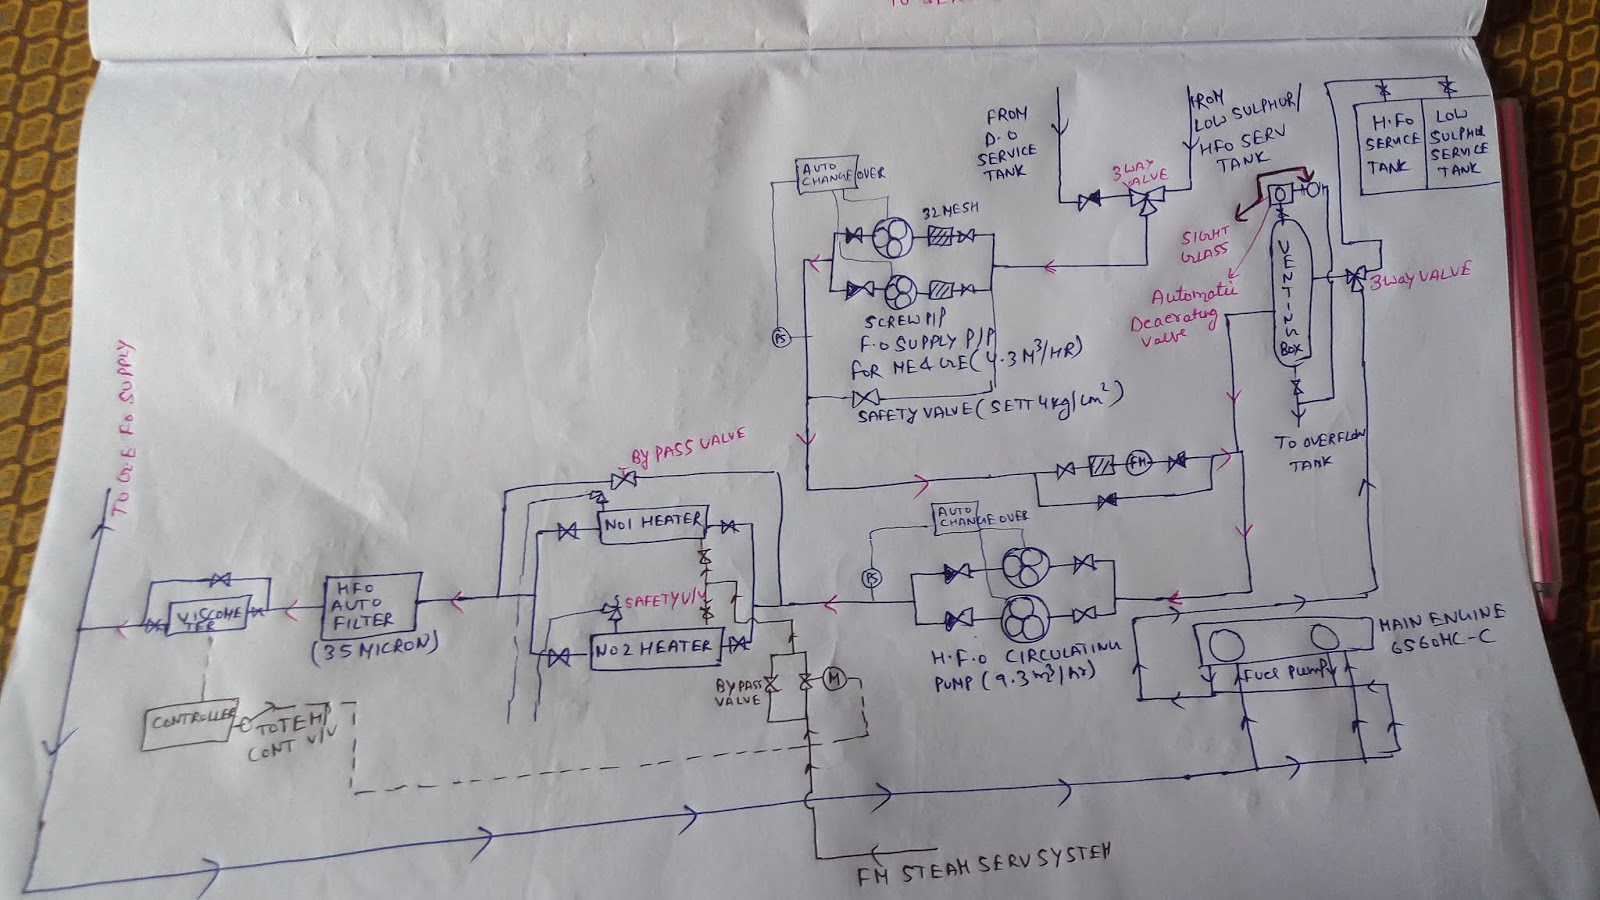 FROM
D.O
SERVICE
TANK
FROM
LOW SULPHUR/
HFO SERV
TANK
3WAY
VALVE
H.FO
SERVICE
TANK
LOW
SULPHUR
SERVICE
TANK
AUTO
CHANGEOVER
32 MESH
SIGHT
GLASS
Automatic
Deaerating
Valve
VENTING
BOX
3WAY VALVE
PS
SCREW P/P
F.O SUPPLY P/P
FOR ME & GE (4.3 M³/HR)
SAFETY VALVE (SETT 4kg/cm²)
TO OVERFLOW
TANK
TO GE F.O SUPPLY
BY PASS VALVE
FM
AUTO
CHANGEOVER
NO1 HEATER
PS
HFO
AUTO
FILTER
(35 MICRON)
VISCOME
TER
SAFETY V/V
NO2 HEATER
H.F.O CIRCULATING
PUMP (9.3 m³/hr)
MAIN ENGINE
6S60MC-C
Fuel PUMP
BYPASS
VALVE
M
CONTROLLER
TO TEMP
CONT V/V
FM STEAM SERV SYSTEM